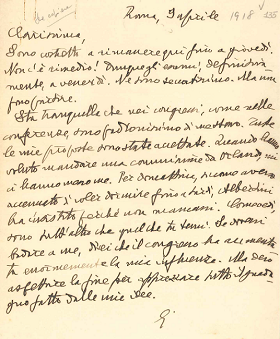 Roma, 9 aprile 1918
Carissima,
Sono costretto a rimanere qui fino a giovedì.
Non c'è rimedio! Dunque gli esami, definitiva
mente, a venerdì. Ne sono seccatissimo. Ma non
posso partire.
Sta tranquilla che nei congressi, come nelle
conferenze, sono padronissimo di me stesso. Tutte
le mie proposte sono state accettate. Quando hanno
voluto mandare una commissione da Orlando,
ci hanno me. Per domattina, siccome avevo
accennato di voler dormire fino a tardi,
ha insistito perché non mancassi. Come vedi,
sono tutt'altro che quel che tu temi. Se dovessi
badare a me, direi che il congresso ha aumenta
to enormemente la mia influenza. Ma devi
aspettare la fine per apprezzare tutto il guada
gno fatto dalle mie idee.
G.